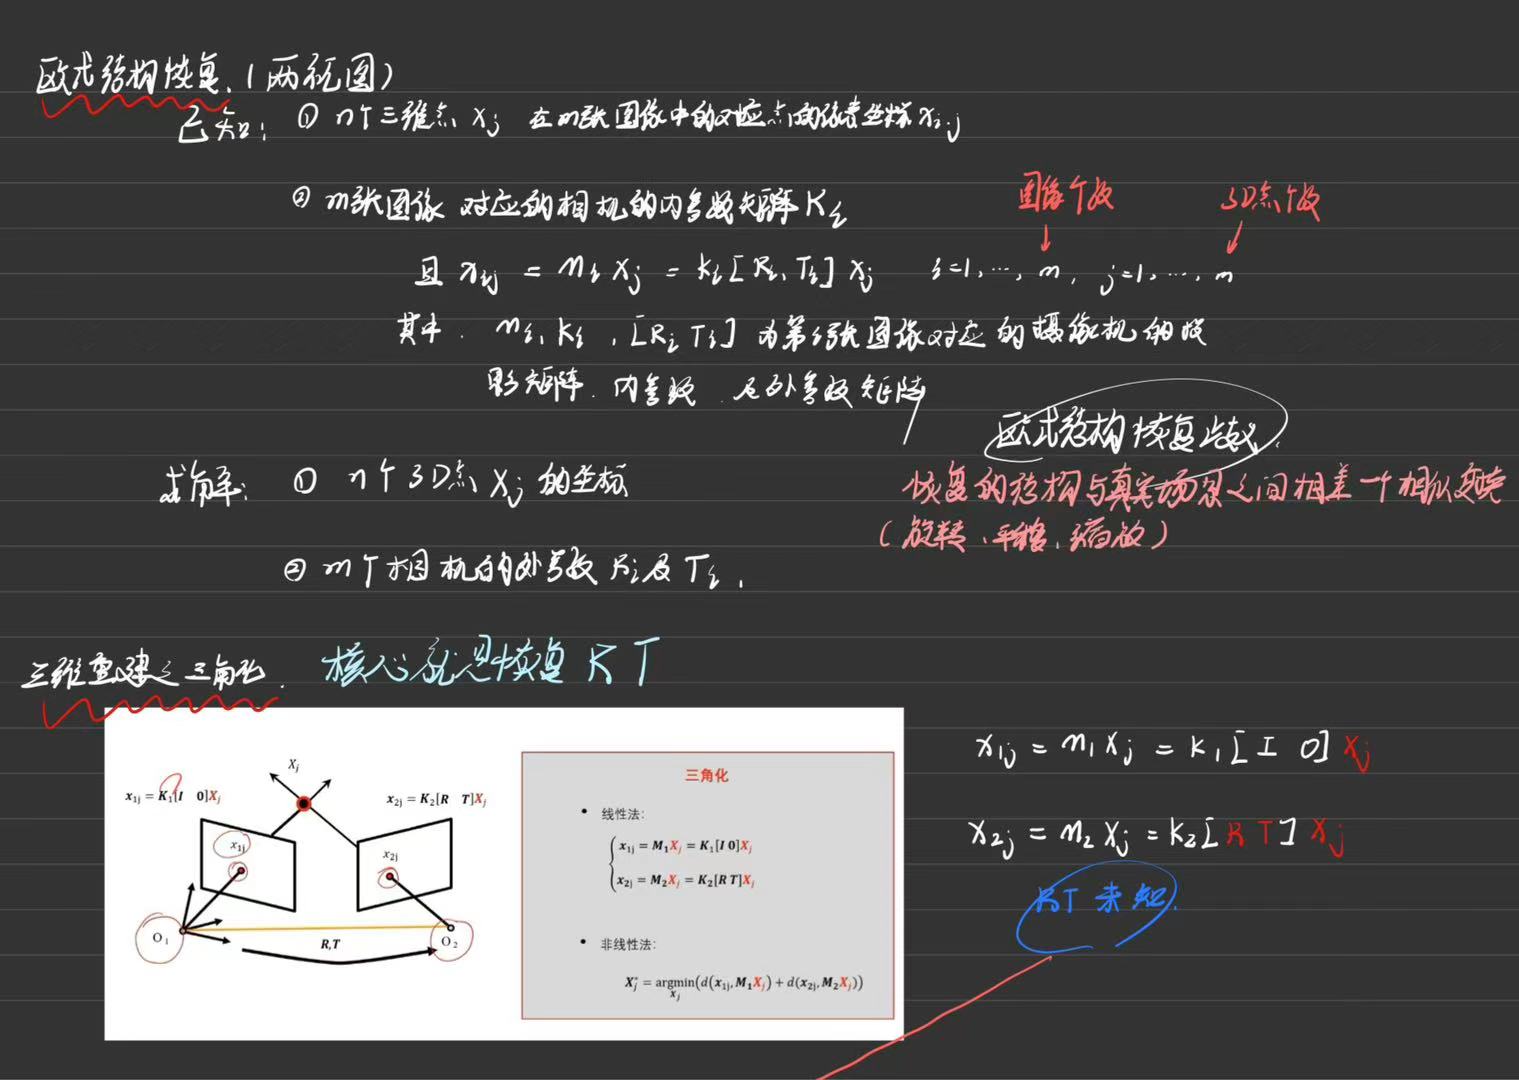 欧式结构恢复.（两视图）
已知: ① n个三维点 Xj 在m张图像中的对应点的像素坐标 xij
② m张图像 对应的相机的内参数矩阵Ki
图像个数 3D点个数
且 xij = Mi Xj = Ki[Ri, Ti] Xj i=1, ..., m, j=1, ..., n
其中. Mi, Ki, [Ri Ti] 为第i张图像对应的摄像机的投
影矩阵. 内参数. 及外参数矩阵
欧式结构恢复歧义.
求解: ① n个3D点 Xj 的坐标
恢复的结构与真实场景之间相差一个相似变换
(旋转、平移、缩放)
② m个相机的外参数 Ri及 Ti,
三维重建之三角化. 核心就是恢复 R T
x1j = K1[I 0]Xj
Xj
x2j = K2[R T]Xj
x1j
x2j
O1
R,T
O2
三角化
• 线性法:
x1j = M1Xj = K1[I 0]Xj
x2j = M2Xj = K2[R T]Xj
• 非线性法:
Xj* = argmin(d(x1j, M1Xj) + d(x2j, M2Xj))
Xj
x1j = M1 Xj = K1[I 0] Xj
x2j = M2 Xj = K2[R T] Xj
RT 未知.